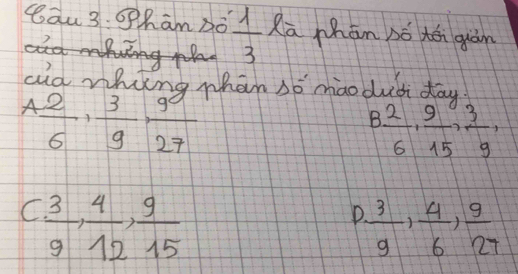 Câu 3. Phân số 1/3 là phân số tối giản
của những ph
của những phân số nào dưới đây.
A 2/6, 3/9, 9/27 B 2/6, 9/15, 3/9,
C. 3/9, 4/12, 9/15 D. 3/9, 4/6, 9/27